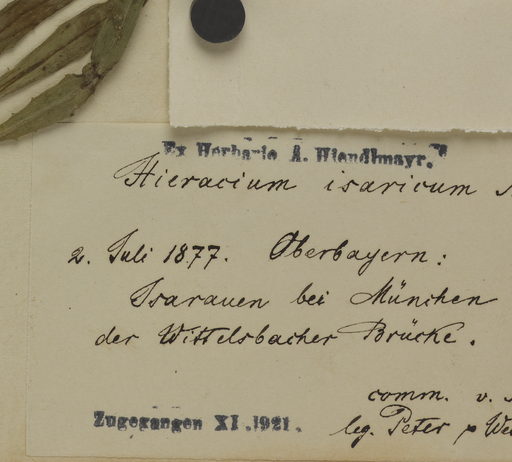 Ex Herbario A. Hiendlmayr.
Hieracium isaricum
2. Juli 1877. Oberbayern:
Isarauen bei München
der Wittelsbacher Brücke.
comm. v.
Zugegangen XI.1921.
leg. Peter